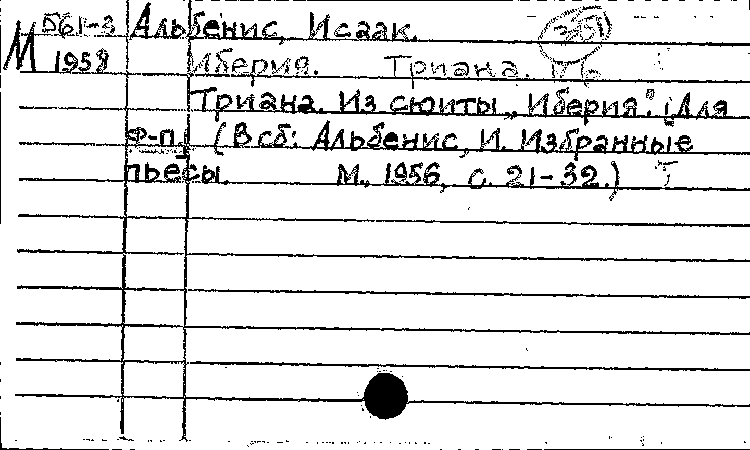 М 561-3 Альбенис, Исаак.
1958 Иберия. Триана.
Триана. Из сюиты „Иберия". [Для
ф-п.] (В сб: Альбенис, И. Избранные
пьесы. М., 1956, с. 21-32.)